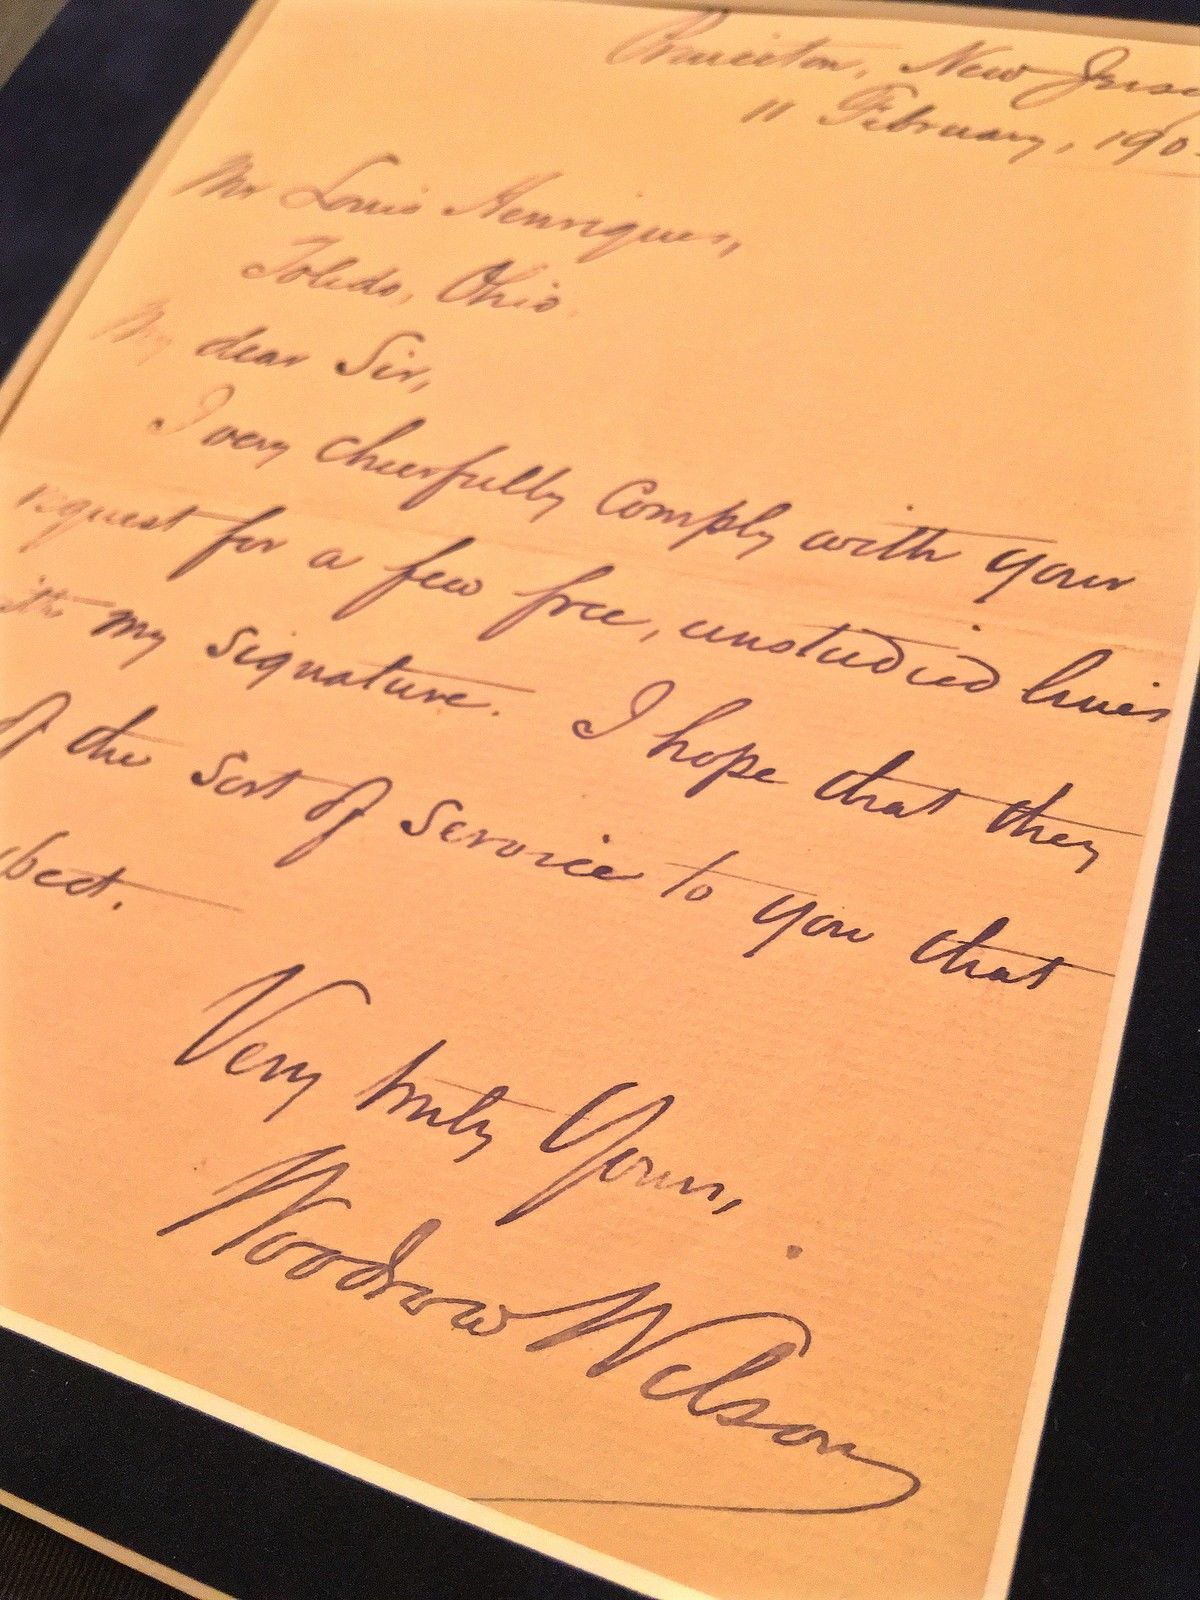 Princeton, New Jersey
11 February, 190
Mr Louis Henriques,
Toledo, Ohio.
My dear Sir,
I very cheerfully comply with your
request for a few free, unstudied lines
my signature. I hope that they
of the sort of service to you that
Very truly Yours,
Woodrow Wilson